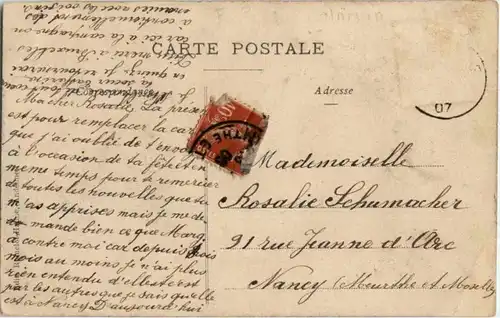 CARTE POSTALE
Adresse
07
Ma cher Rosalie La présen
est pour remplacer la car
que j'ai oublié de t'envoy
à l'occasion de ta fête en
même temps pour te remercier
de toutes les nouvelles que tu
m'as apprises mais je me de
mande bien ce que Margi
a contre moi car depuis trois
mois au moins je n'ai plus
rien entendu d'elle est ce
par les autres que je sais qu'elle
est à Nancy D'aujourd'hui
en quinze je retournerai
à Bruxelles
car ici à la campagne on
s'ennuie
à continuellement des
avec les
Mademoiselle
Rosalie Schumacher
21 rue Jeanne d'Arc
Nancy (Meurthe et Moselle)